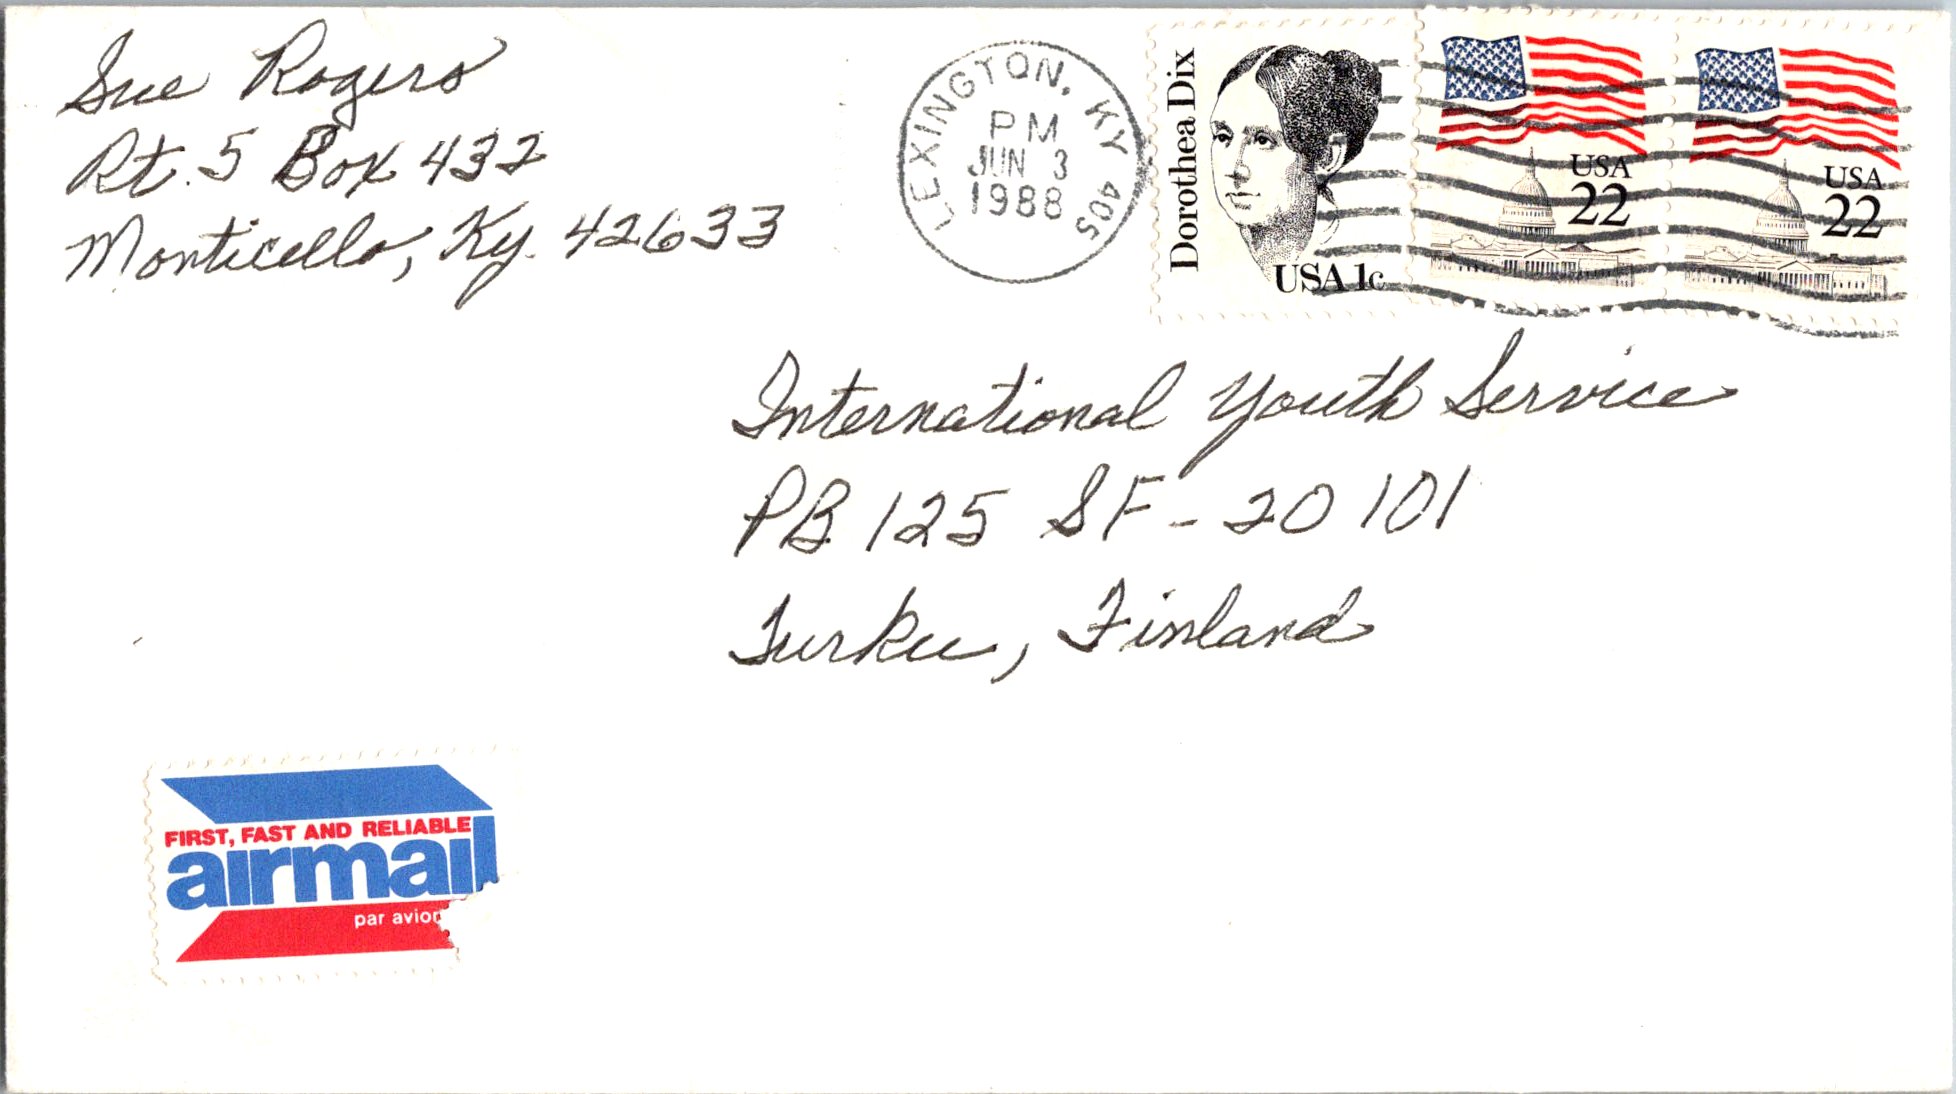 Sue Rogers
Rt. 5 Box 432
Monticello, Ky. 42633
LEXINGTON, KY 405
PM
JUN 3
1988
Dorothea Dix
USA 1c
USA
22
USA
22
International Youth Service
PB 125 SF-20101
Turku, Finland
FIRST, FAST AND RELIABLE
airmail
par avion